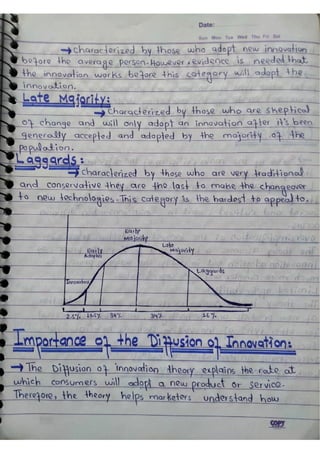 Date:
Sun Mon Tue Wed Thu Fri Sat
→ Characterized by those who adopt new innovation
before the average person. However, evidence is needed that
the innovation works before this category will adopt the
innovation.
Late Majority:
→ Characterized by those who are skeptical
of change and will only adopt an innovation after it's been
generally accepted and adopted by the majority of the
population.
Laggards:
→ characterized by those who are very traditional
and conservative they are the last to make the changeover
to new technologies. This category is the hardest to appeal to.
Early
Majority
Late
Majority
Early
Adopter
Laggards
2.5% 13.5% 34% 34% 16%
Importance of the Diffusion of Innovation:
→ The Diffusion of innovation theory explains the rate at
which consumers will adopt a new product or service.
Therefore, the theory helps marketers understand how
COPY